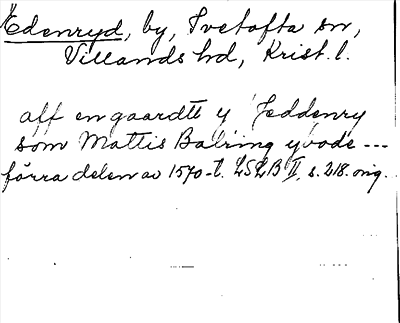 Edenryd, by, Ivetofta sn,
Villands hd, Krist. l.
aff en gaardtt y Jeddenry
som Mattis Balring y bode ---
förra delen av 1570-t. LSLB II, s. 218. orig.